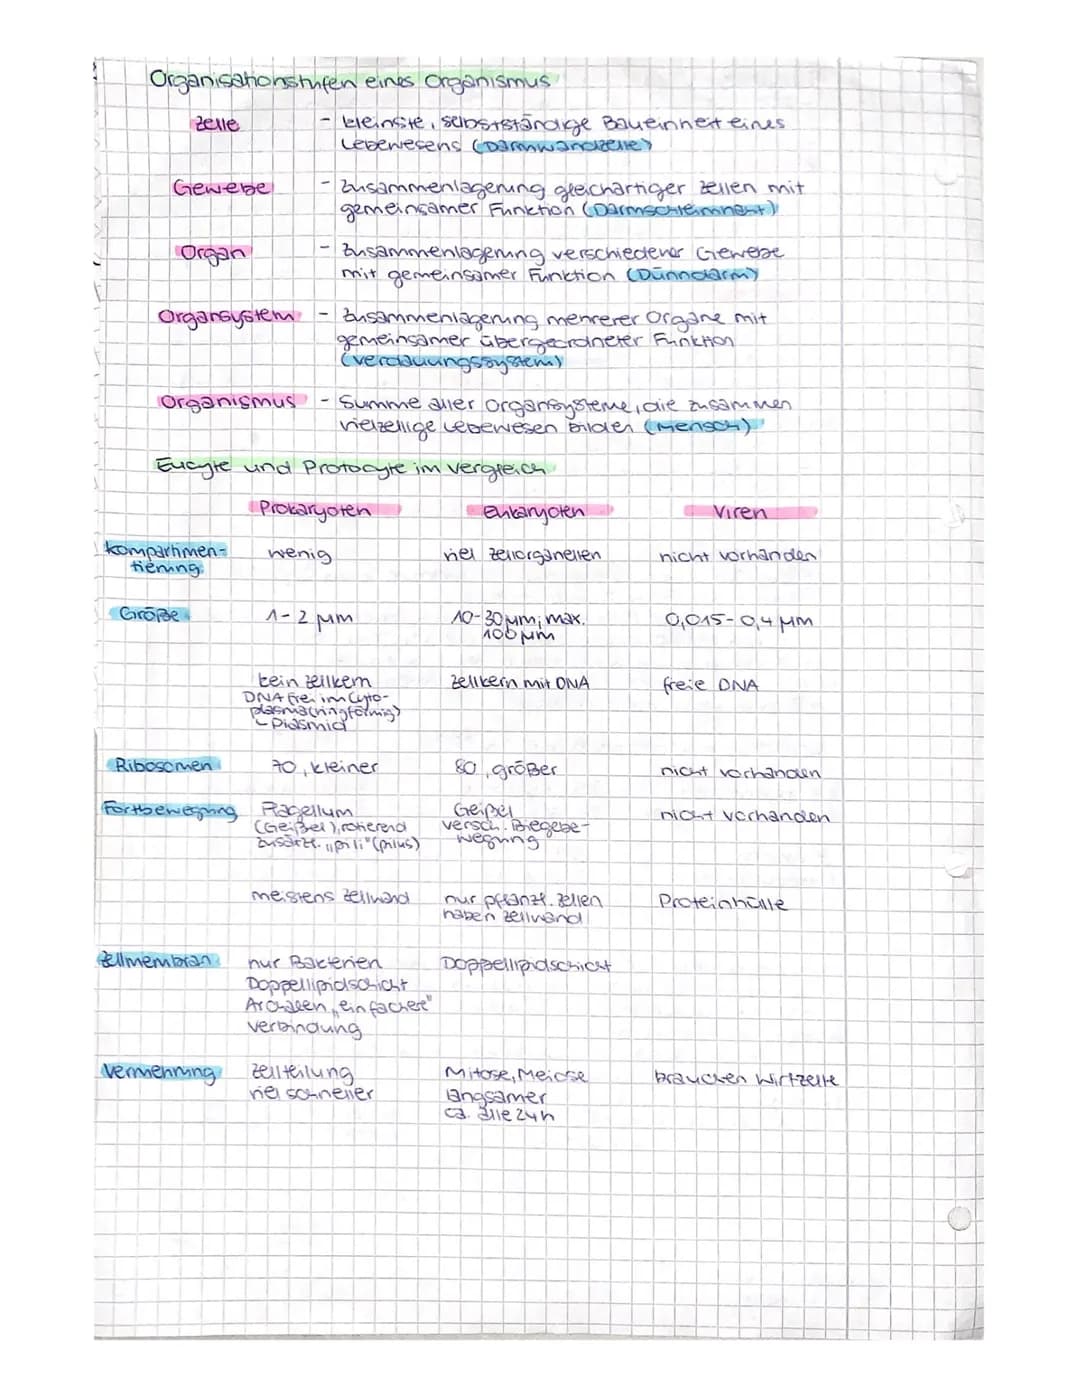 Organisationsstufen eines Organismus
Zelle - kleinste, selbstständige Baueinheit eines
Lebewesens (Darmwandzelle)
Gewebe - Zusammenlagerung gleichartiger Zellen mit
gemeinsamer Funktion (Darmschleimhaut)
Organ - Zusammenlagerung verschiedener Gewebe
mit gemeinsamer Funktion (Dünndarm)
Organsystem - Zusammenlagerung mehrerer Organe mit
gemeinsamer übergeordneter Funktion
(Verdauungssystem)
Organismus - Summe aller Organsysteme, die zusammen
vielzellige Lebewesen bilden (Mensch)
Eucyte und Protocyte im Vergleich
Prokaryoten Eukaryoten Viren
Kompartimen- wenig viel Zellorganellen nicht vorhanden
tierung
Größe 1-2 µm 10-30µm; max. 0,015-0,4 µm
100 µm
kein Zellkern Zellkern mit DNA freie DNA
DNA frei im Cyto-
plasma (ringförmig)
Plasmid
Ribosomen 70, kleiner 80, größer nicht vorhanden
Fortbewegung Flagellum Geißel nicht vorhanden
(Geißel), rotierend versch. Biegebe-
zusätzl. "pili" (pilus) wegung
meistens Zellwand nur pflanzl. Zellen Proteinhülle
haben Zellwand
Zellmembran nur Bakterien Doppellipidschicht
Doppellipidschicht
Archaeen „einfachere"
Verbindung
Vermehrung Zellteilung Mitose, Meiose brauchen Wirtzelle
viel schneller langsamer
ca. alle 24h